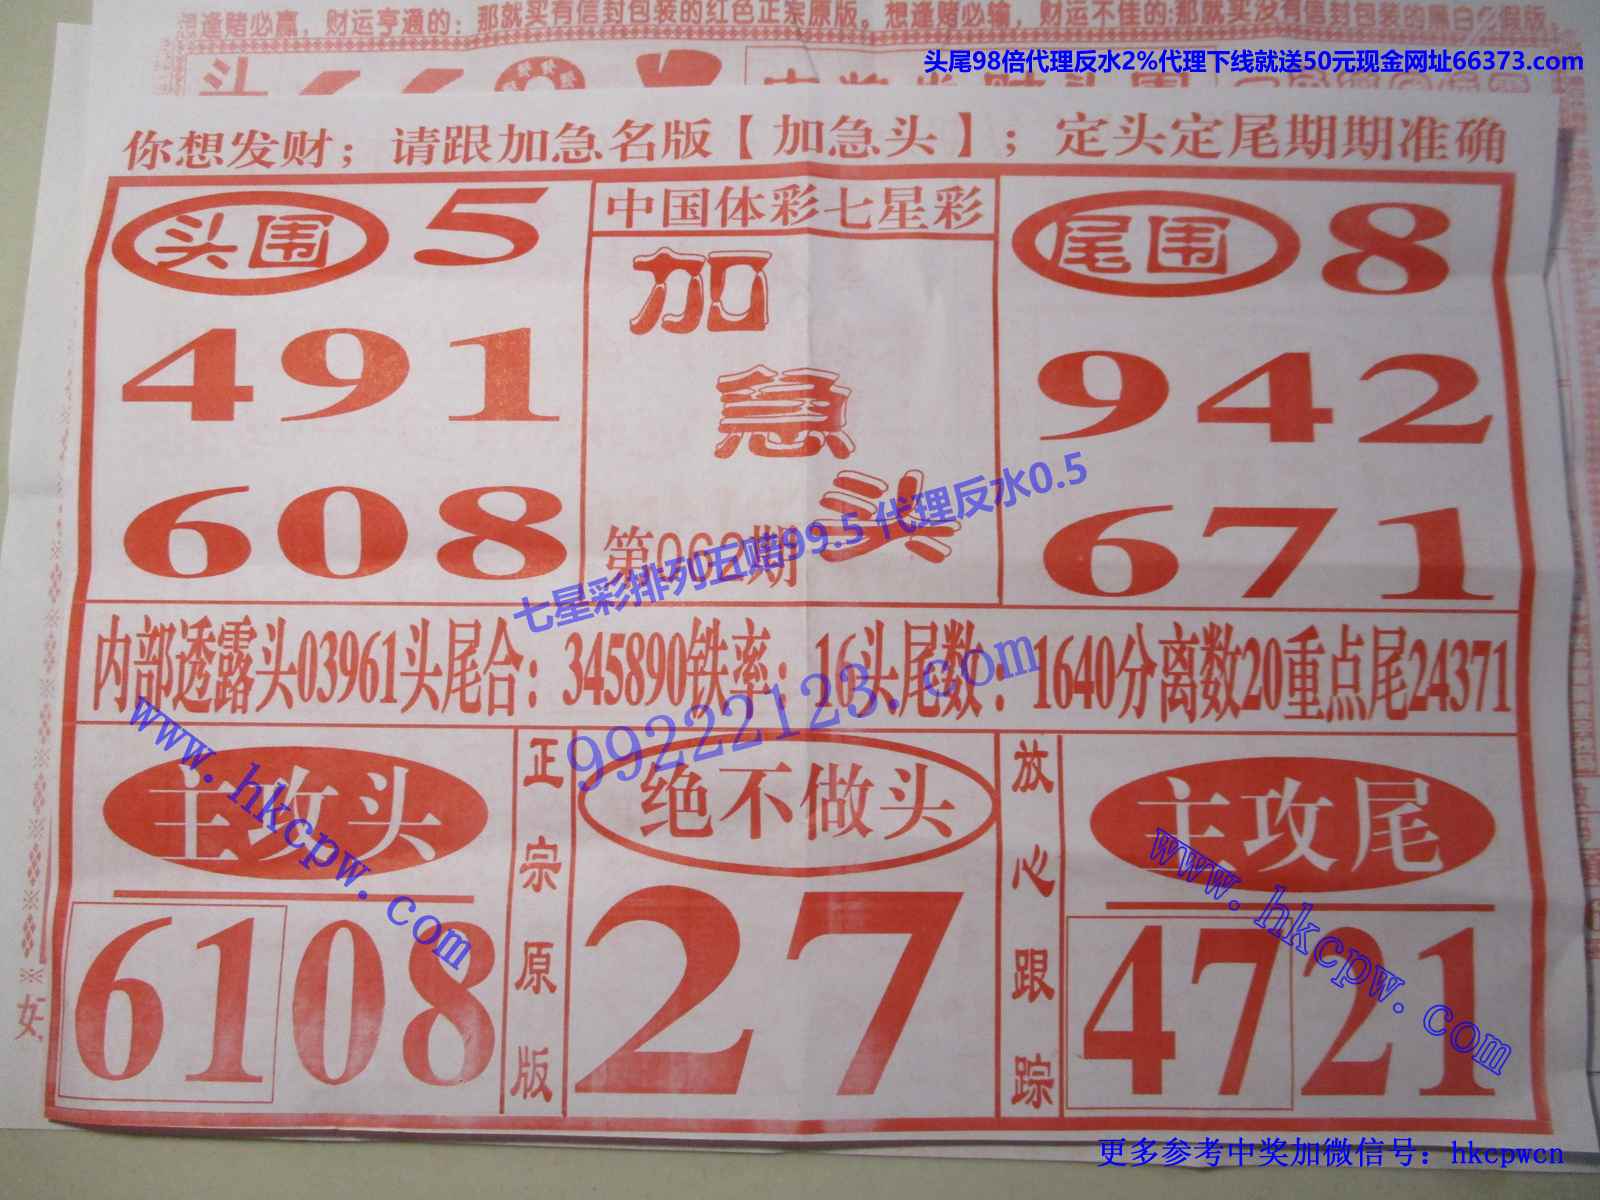 想逢赌必赢，财运亨通的：那就买有信封包装的红色正宗原版。想逢赌必输，财运不佳的：那就买没有信封包装的黑白假版
头尾98倍代理反水2%代理下线就送50元现金网址66373.com
你想发财；请跟加急名版【加急头】；定头定尾期期准确
头围 5
491
608
中国体彩七星彩
加急头
尾围 8
942
671
七星彩排列五赔99.5 代理反水0.5
内部透露头03961头尾合：345890铁率：16头尾数：1640分离数20重点尾24371
99222123.com
www.hkcpw.com
主攻头
6108
正宗原版
绝不做头
27
放心跟踪
主攻尾
4721
www.hkcpw.com
更多参考中奖加微信号：hkcpwcn